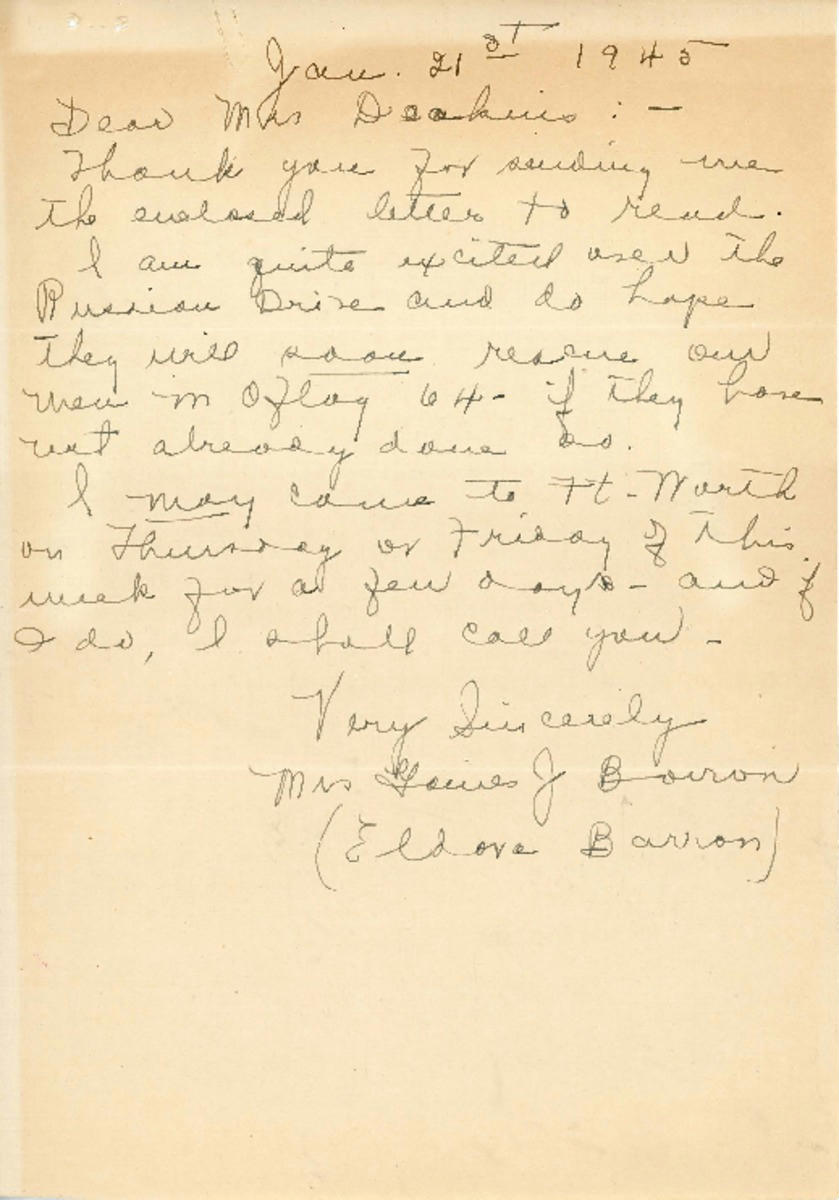 Jan. 21st 1945
Dear Mrs Deakins : -
Thank you for sending me
the enclosed letter to read.
I am quite excited over the
Russian Drive and do hope
they will soon rescue our
men in Oflag 64 - if they have
not already done so.
I may come to Ft. Worth
on Thursday or Friday of this
week for a few days - and if
I do, I shall call you -
Very Sincerely
Mrs Gaines J Barron
(Eldora Barron)